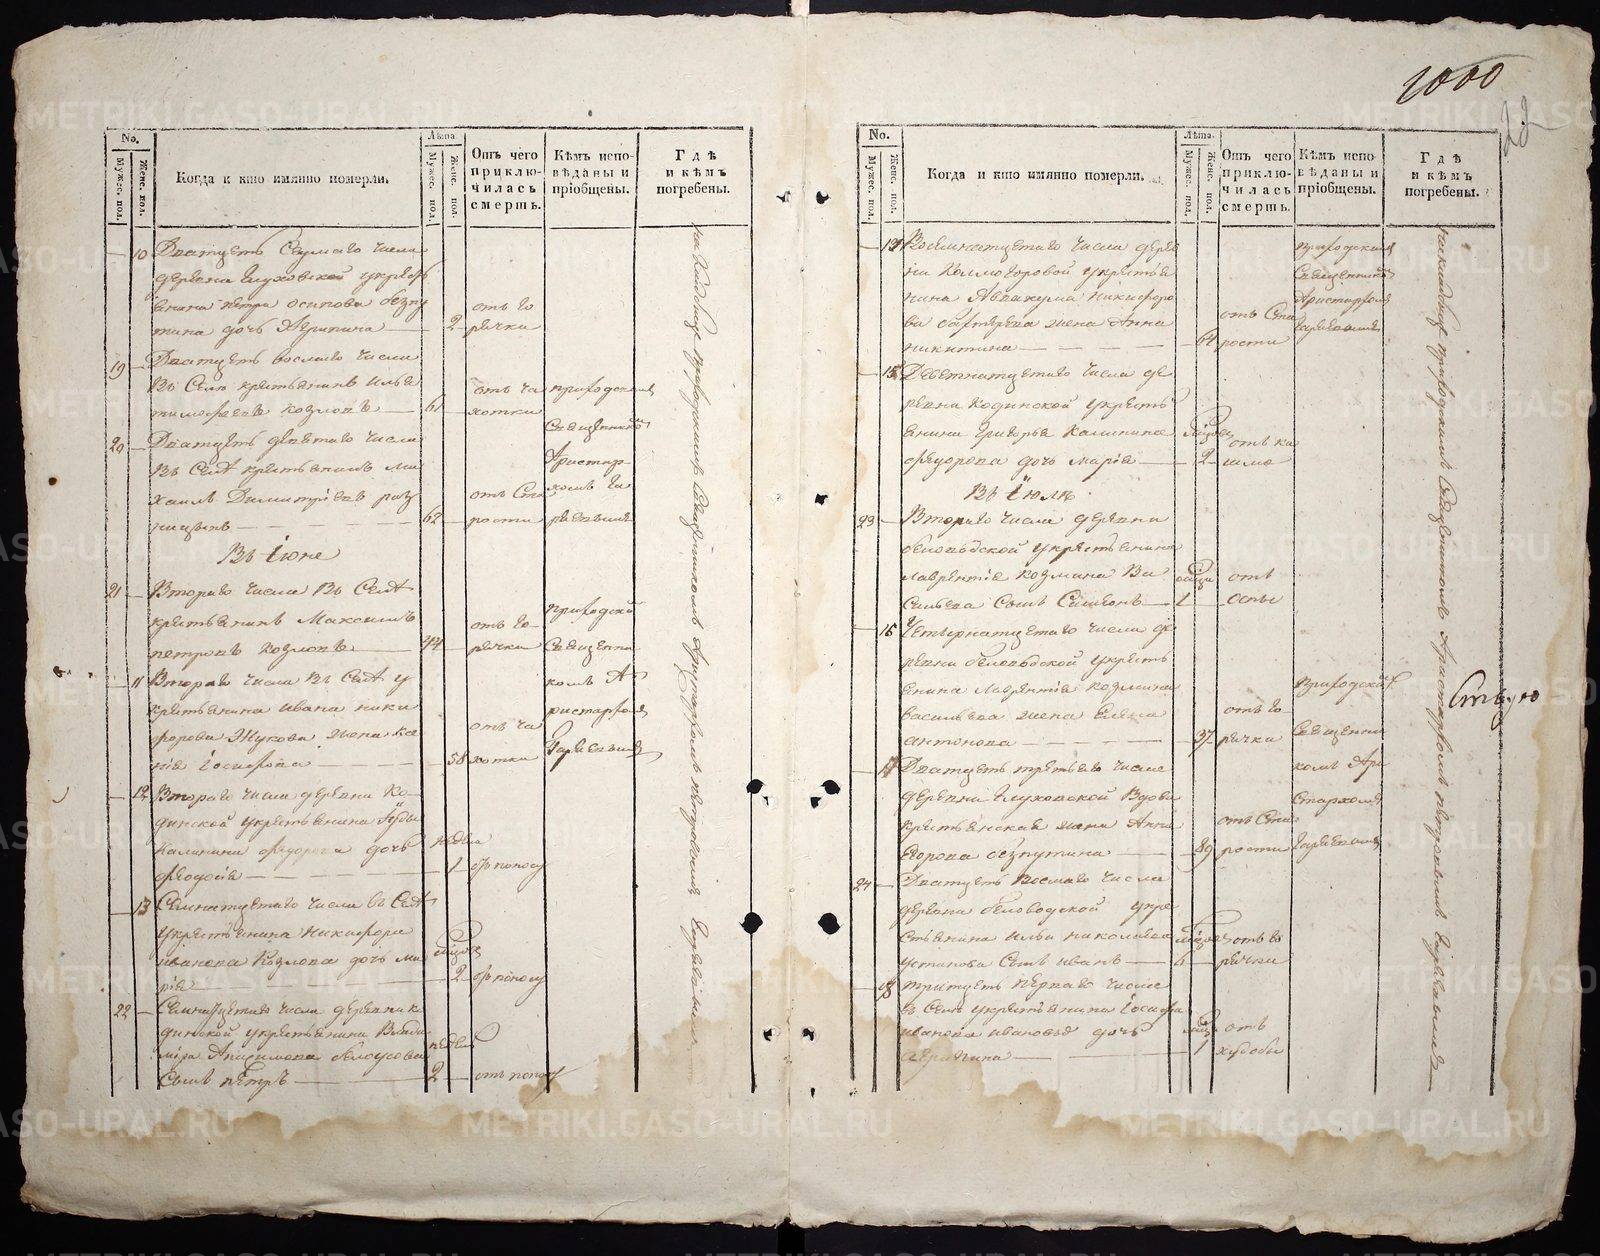 1000
22
No.
Мужес. пол.
Женс. пол.
Когда и кто имянно померли.
Лѣта.
Мужес. пол.
Женс. пол.
Отъ чего
приклю-
чилась
смерть.
Кѣмъ испо-
вѣданы и
пріобщены.
Гдѣ
и кѣмъ
погребены.
10 Дватцеть седмаго числа
деревни Глуховской укресть
янина Петра Осипова Безпу
тина дочь Агрипина — 2
отъ го
рячки
19 Дватцеть восмаго числа
въ селе крестьянинъ Илья
Тимофеевъ Козловъ — 61
отъ ча
хотки
приходскимъ
священникомъ
Аристар-
хомъ Га
20 Дватцеть девятаго числа
въ селѣ крестьянинъ Ми
хаилъ Димитріевъ
62
отъ ста
рости
Въ Іюне
21 Втораго числа въ селѣ
крестьянинъ Максимъ
Петровъ Козловъ — 44
отъ го-
рячки
приходски
священни
комъ А
ристархом
11 Втораго числа въ селѣ у
крестьянина Ивана Ники
форова Жукова жена Ксе
нія Іосифова — 58
отъ ча
хотки
12 Втораго числа деревни Ко-
динской укрестьянина
Калинина Федорова дочь
Феодосія — 1
недель
отъ поносу
13 Семнатцетаго числа въ селѣ
укрестьянина Никифора
Иванова Козлова дочь Ма
рія — 2
месяцов
отъ поносу
22 Семнатцетаго числа деревни Ко
динской укрестьянина Влади
міра Анисимова Белоусова
сынъ Петръ — 2
недель
отъ поносу
на кладбище приходскимъ священникомъ Аристархомъ
No.
Мужес. пол.
Женс. пол.
Когда и кто имянно померли.
Лѣта.
Мужес. пол.
Женс. пол.
Отъ чего
приклю-
чилась
смерть.
Кѣмъ испо-
вѣданы и
пріобщены.
Гдѣ
и кѣмъ
погребены.
14 Восемнатцетаго числа дерев
ни Колмогоровой укрестья
нина Аввакума Никифоро
ва жена Анна
Никитина — 61
отъ ста
рости
приходским
священником
Аристархом
15 Деветнатцетаго числа де
ревни Кодинской укресть
янина Григорья Калинина
Федорова дочь Марія — 2
месяцов
отъ ка
шлю
Въ Іюле
23 Втораго числа деревни
Беловодской укрестьянина
Лаврентія Козмина Ва
сильева сынъ Симеонъ — 1
отъ
оспы
16 Четырнатцетаго числа де
ревни Беловодской укресть
янина Лаврентія Козмина
Васильева жена Елена
Антонова — 37
отъ го
рячки
приходским
священни
комъ Ари
стархомъ
17 Дватцеть третьяго числа
деревни Глуховской вдова
крестьянская жена Анна
Егорова Безпутина — 89
отъ ста
рости
24 Дватцеть восмаго числа
деревни Беловодской укре
стьянина Ильи Николаева
Устинова сынъ Иванъ — 6
отъ го
рячки
18 Тритцеть перваго числа
в селе укрестьянина Іосифа
Иванова дочь
Агрипина — 1
отъ
худобы
на кладбище приходскимъ священникомъ Аристархомъ
METRIKI.GASO-URAL.RU